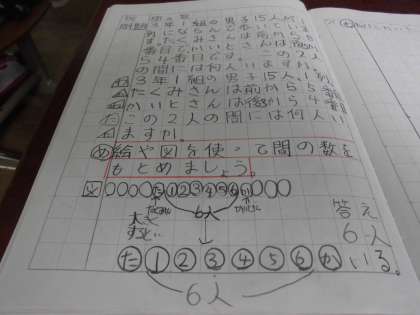 問題3年1組の男子15人が1
列にならんで歩いていま
す。たくみさんは前から5
番目で、かいとさんは後ろか
ら4番目です。この2人
の間には何人いますか。
3年1組の男子15人、1列
たくみさんは前から5番
かいとさんは後ろから4番
この2人の間には何人い
ますか。
め 絵や図を使って間の数を
もとめましょう。
図 ○○○○た①②③④⑤⑥か○○○
たくみさん かいとさん
6人
大きく
すると…
た①②③④⑤⑥か
6人
答え
6人
いる。